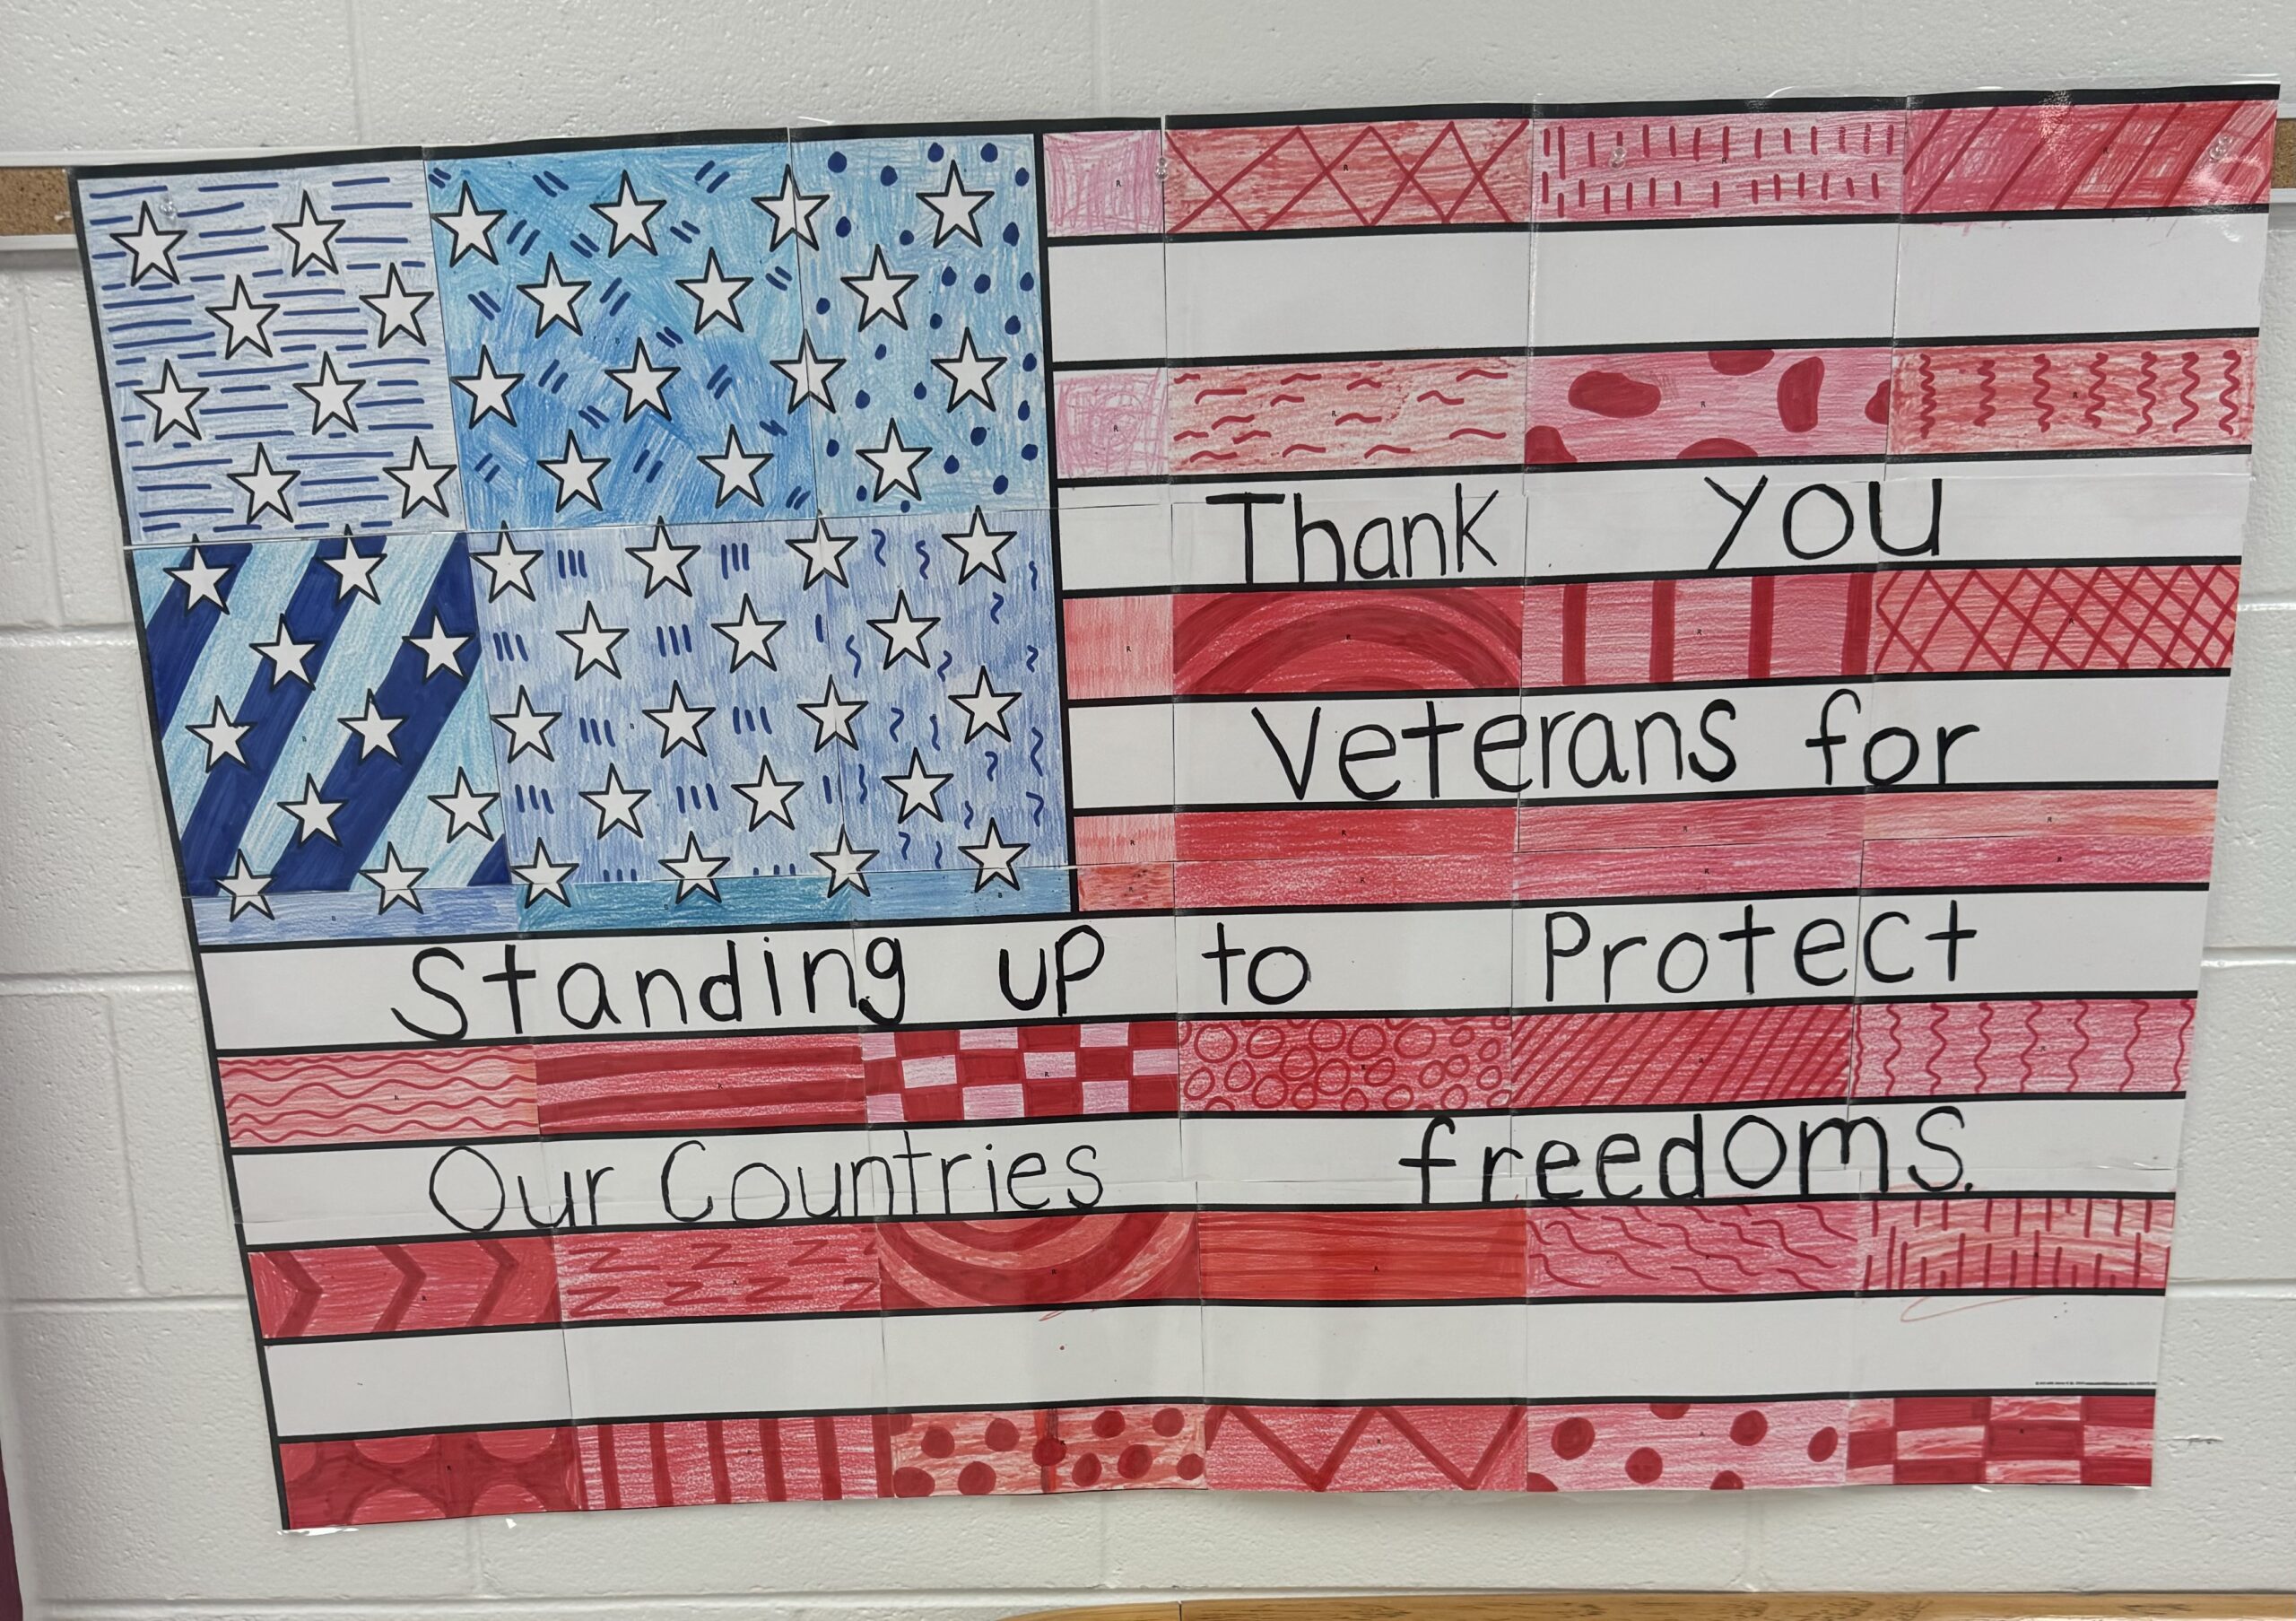 Thank you
Veterans for
Standing up to Protect
Our Countries freedoms.